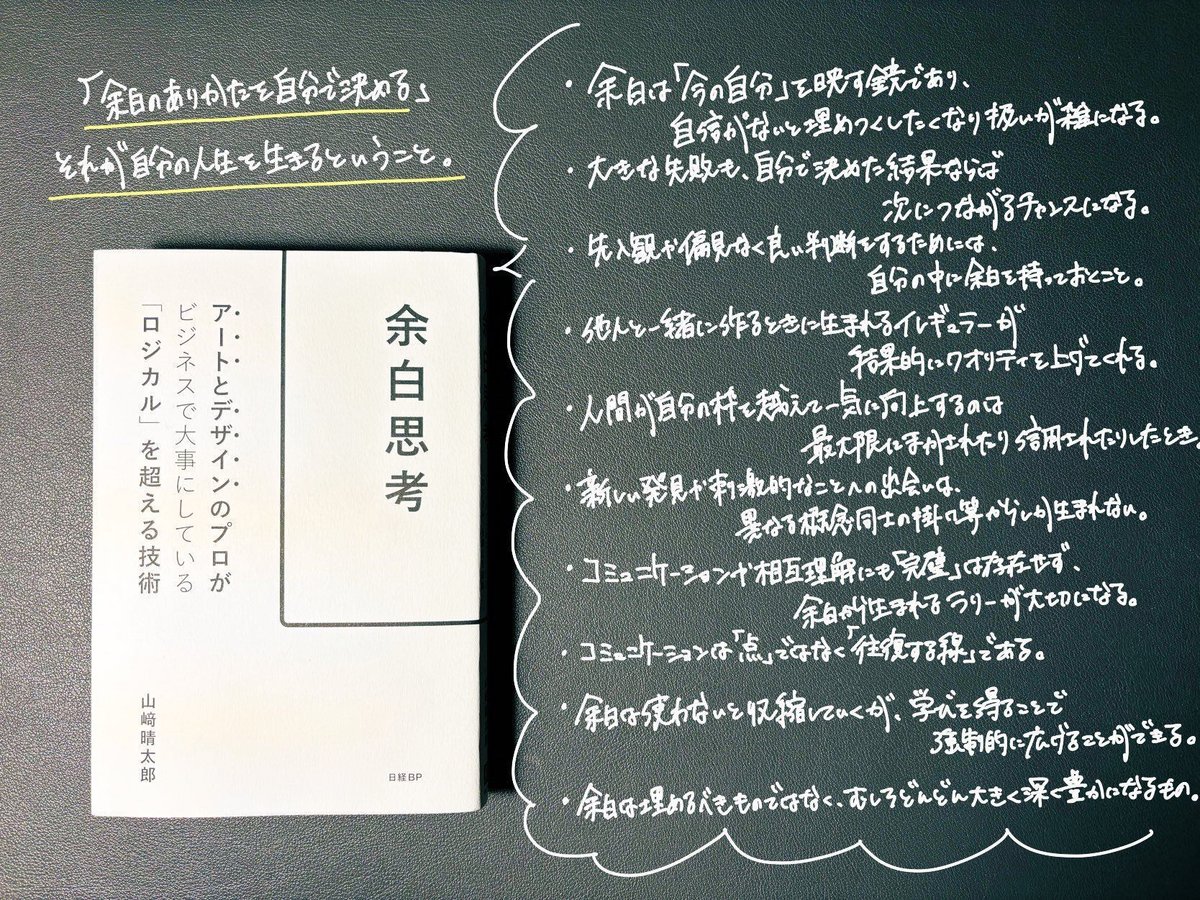 「余白のありかたを自分で決める」
それが自分の人生を生きるということ。
余白思考
アートとデザインのプロが
ビジネスで大事にしている
「ロジカル」を超える技術
山﨑晴太郎
日経BP
・余白は「今の自分」を映す鏡であり、
自信がないと埋めつくしたくなり扱いが雑になる。
・大きな失敗も、自分で決めた結果ならば
次につながるチャンスになる。
・先入観や偏見なく良い判断をするためには、
自分の中に余白を持っておくこと。
・他人と一緒に作るときに生まれるイレギュラーが
結果的にクオリティを上げてくれる。
・人間が自分の枠を越えて一気に向上するのは
最大限にまかされたり信用されたりしたとき。
・新しい発見や刺激的なことへの出会いは、
異なる概念同士の掛け算からしか生まれない。
・コミュニケーションや相互理解にも「完璧」は存在せず、
余白から生まれるラリーが大切になる。
・コミュニケーションは「点」ではなく「往復する線」である。
・余白は使わないと収縮していくが、学びを得ることで
強制的に広げることができる。
・余白は埋めるべきものではなく、むしろどんどん大きく深く豊かになるもの。